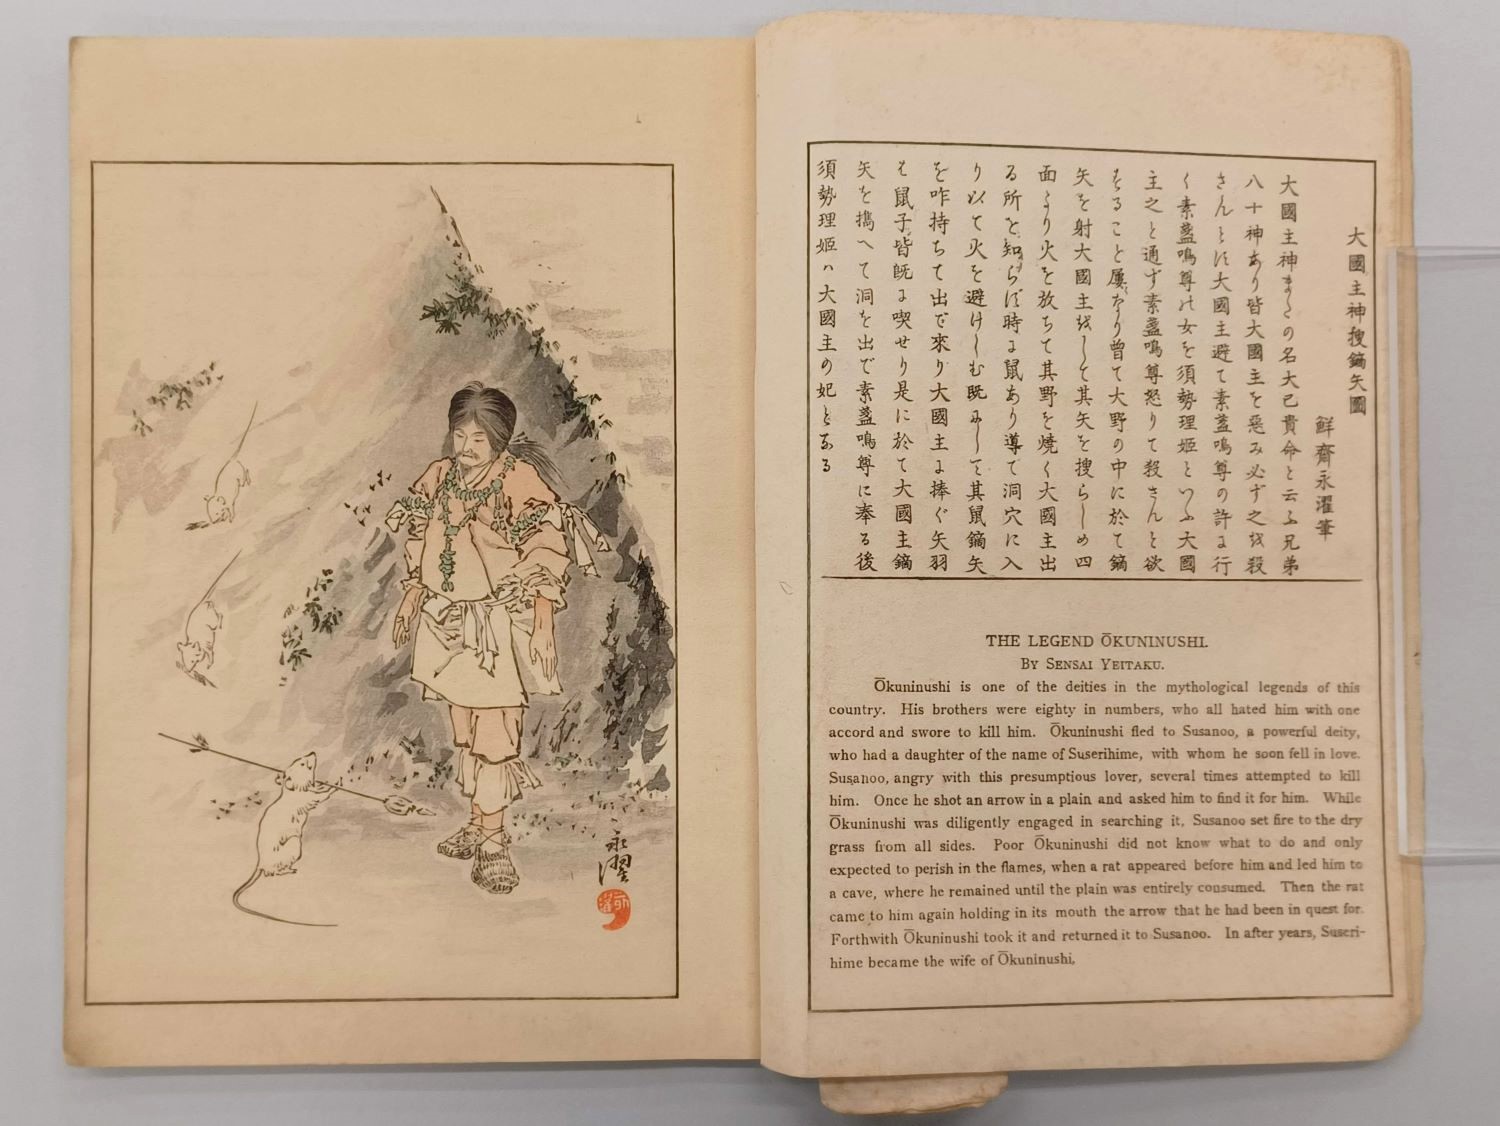 大國主神搜鏑矢圖
鮮齋永濯筆
大國主神またの名大己貴命と云ふ兄弟
八十神あり皆大國主を惡み必ず之を殺
さんとす大國主避て素盞嗚尊の許に行
く素盞嗚尊の女を須勢理姫といふ大國
主之と通ず素盞嗚尊怒りて殺さんと欲
すること屢なり曾て大野の中に於て鏑
矢を射大國主をして其矢を搜らしめ四
面より火を放ちて其野を燒く大國主出
る所を知らず時に鼠あり導て洞穴に入
り以て火を避けしむ既にして其鼠鏑矢
を咋持ちて出で來り大國主に捧ぐ矢羽
は鼠子皆既に喫せり是に於て大國主鏑
矢を携へて洞を出で素盞嗚尊に奉る後
須勢理姫ハ大國主の妃となる
THE LEGEND ŌKUNINUSHI.
BY SENSAI YEITAKU.
Ōkuninushi is one of the deities in the mythological legends of this
country. His brothers were eighty in numbers, who all hated him with one
accord and swore to kill him. Ōkuninushi fled to Susanoo, a powerful deity,
who had a daughter of the name of Suserihime, with whom he soon fell in love.
Susanoo, angry with this presumptious lover, several times attempted to kill
him. Once he shot an arrow in a plain and asked him to find it for him. While
Ōkuninushi was diligently engaged in searching it, Susanoo set fire to the dry
grass from all sides. Poor Ōkuninushi did not know what to do and only
expected to perish in the flames, when a rat appeared before him and led him to
a cave, where he remained until the plain was entirely consumed. Then the rat
came to him again holding in its mouth the arrow that he had been in quest for.
Forthwith Ōkuninushi took it and returned it to Susanoo. In after years, Suseri-
hime became the wife of Ōkuninushi.
永濯